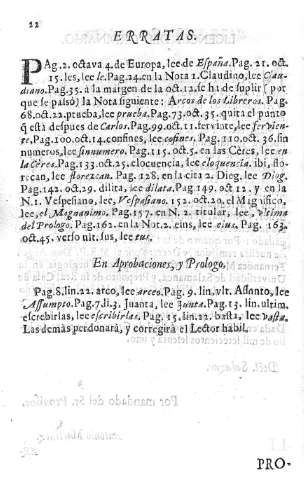 22
ERRATAS.
PAg.2. octava 4. de Europa, lee de España. Pag. 21. oct.
15. les, lee le. Pag.24. en la Nota 1. Claudino, lee Clau-
diano. Pag.35. à la margen de la oct.12. se hà de suplir (por
que se passò) la Nota siguiente: Arcos de los Libreros. Pag.
68. oct.22. prueba, lee prueba. Pag.73. oct.35. quita el punto
q está despues de Carlos. Pag.99. oct.11. fervinte, lee fervien-
te. Pag.100. oct.14. confines, lee cofines. Pag.110. oct.36. sin
numeros, lee sinnumero. Pag.115. oct.5. en las Cères, lee en
la Cères. Pag.133. oct.25. elocuencia, lee eloquencia. ibi, flo-
recan, lee florezcan. Pag. 128. en la cita 2. Dieg, lee Diog.
Pag.142. oct.29. dilita, lee dilata. Pag.149. oct.12. y en la
N.1. Vespesiano, lee, Vespasiano. 152. oct.20. el Mignifico,
lee, el Magnanimo. Pag.157. en N. 2. titular, lee, ultima
del Prologo. Pag.162. en la Not.2. eins, lee eius. Pag. 163.
oct.45. verso nit. sus, lee tus.
En Aprobaciones, y Prologo.
Pag.8. lin.22. arco, lee arceo. Pag.9. lin. vlt. Assonto, lee
Assumpto. Pag.7. di.3. Juanta, lee Junta. Pag.13. lin. ultim.
escrebirlas, lee escribirlas. Pag. 15. lin.22. basta, lee vasta.
Las demàs perdonarà, y corregirà el Lector habil.
PRO-